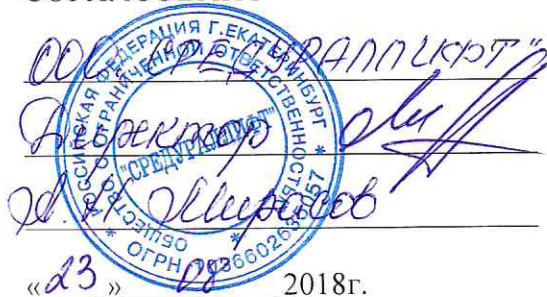 ООО "СРЕДУРАЛЛИФТ"
Директор
«23» 08 2018г.
РОССИЙСКАЯ ФЕДЕРАЦИЯ Г.ЕКАТЕРИНБУРГ
ОБЩЕСТВО С ОГРАНИЧЕННОЙ ОТВЕТСТВЕННОСТЬЮ
"СРЕДУРАЛЛИФТ"
ОГРН